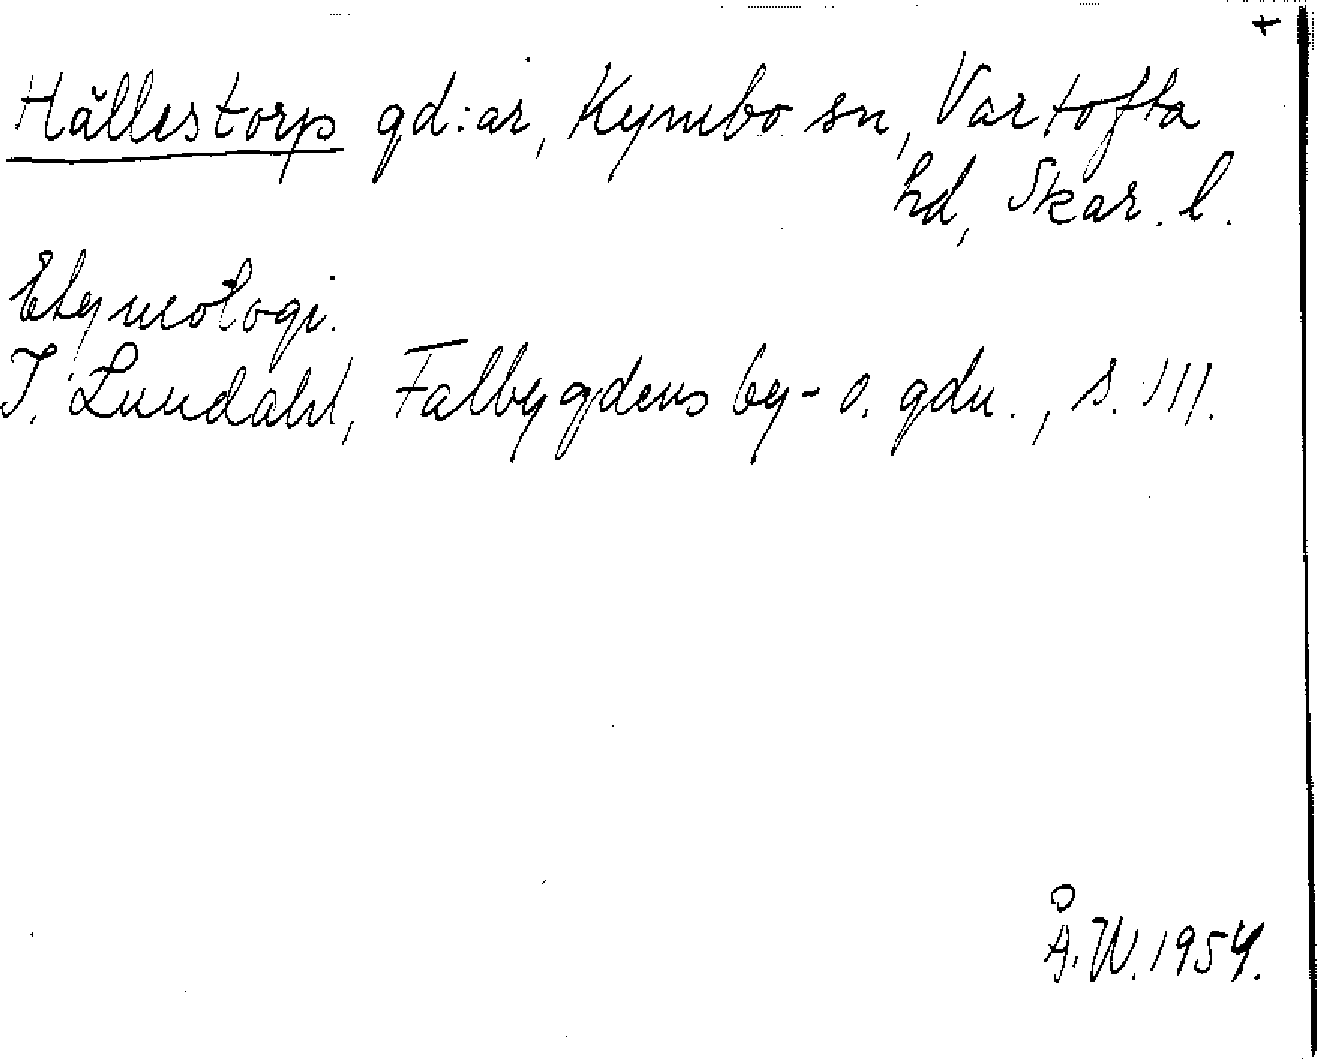 +
Hällestorp gd:ar, Kymbo sn, Vartofta
hd, Skar. l.
Etymologi.
I. Lundahl, Falbygdens by- o. gdn., s. 111.
Å.W. 1954.